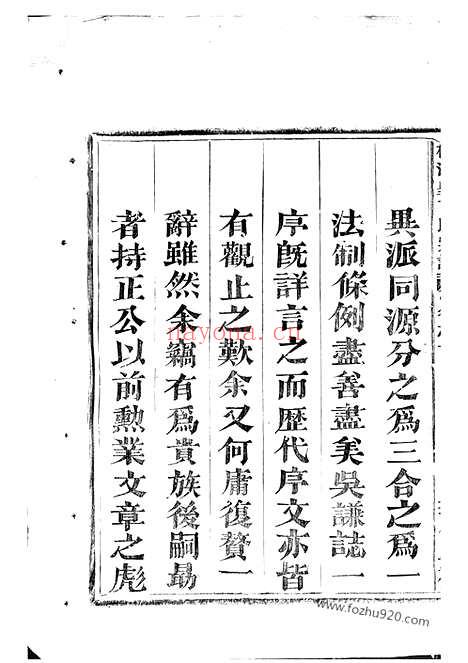 異派同源分之爲三合之爲一
法制條例盡善盡美吳謙誌一
序旣詳言之而歷代序文亦皆
有觀止之歎余又何庸復贅一
辭雖然余竊有爲貴族後嗣勗
者持正公以前勲業文章之彪
nayona.cn
www.fozhu920.com